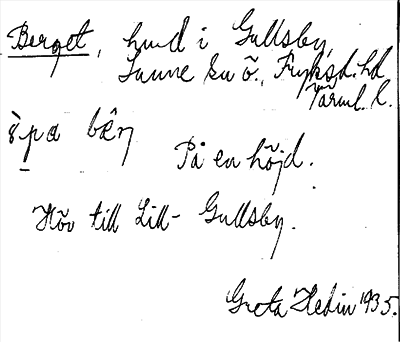 Berget, hmd i Gullsby,
Sunne sn ö., Fryksd. hd,
Värml. l.
på bæ̂ŋ
På en höjd.
Hör till Lill-Gullsby.
Greta Hedin 1935.